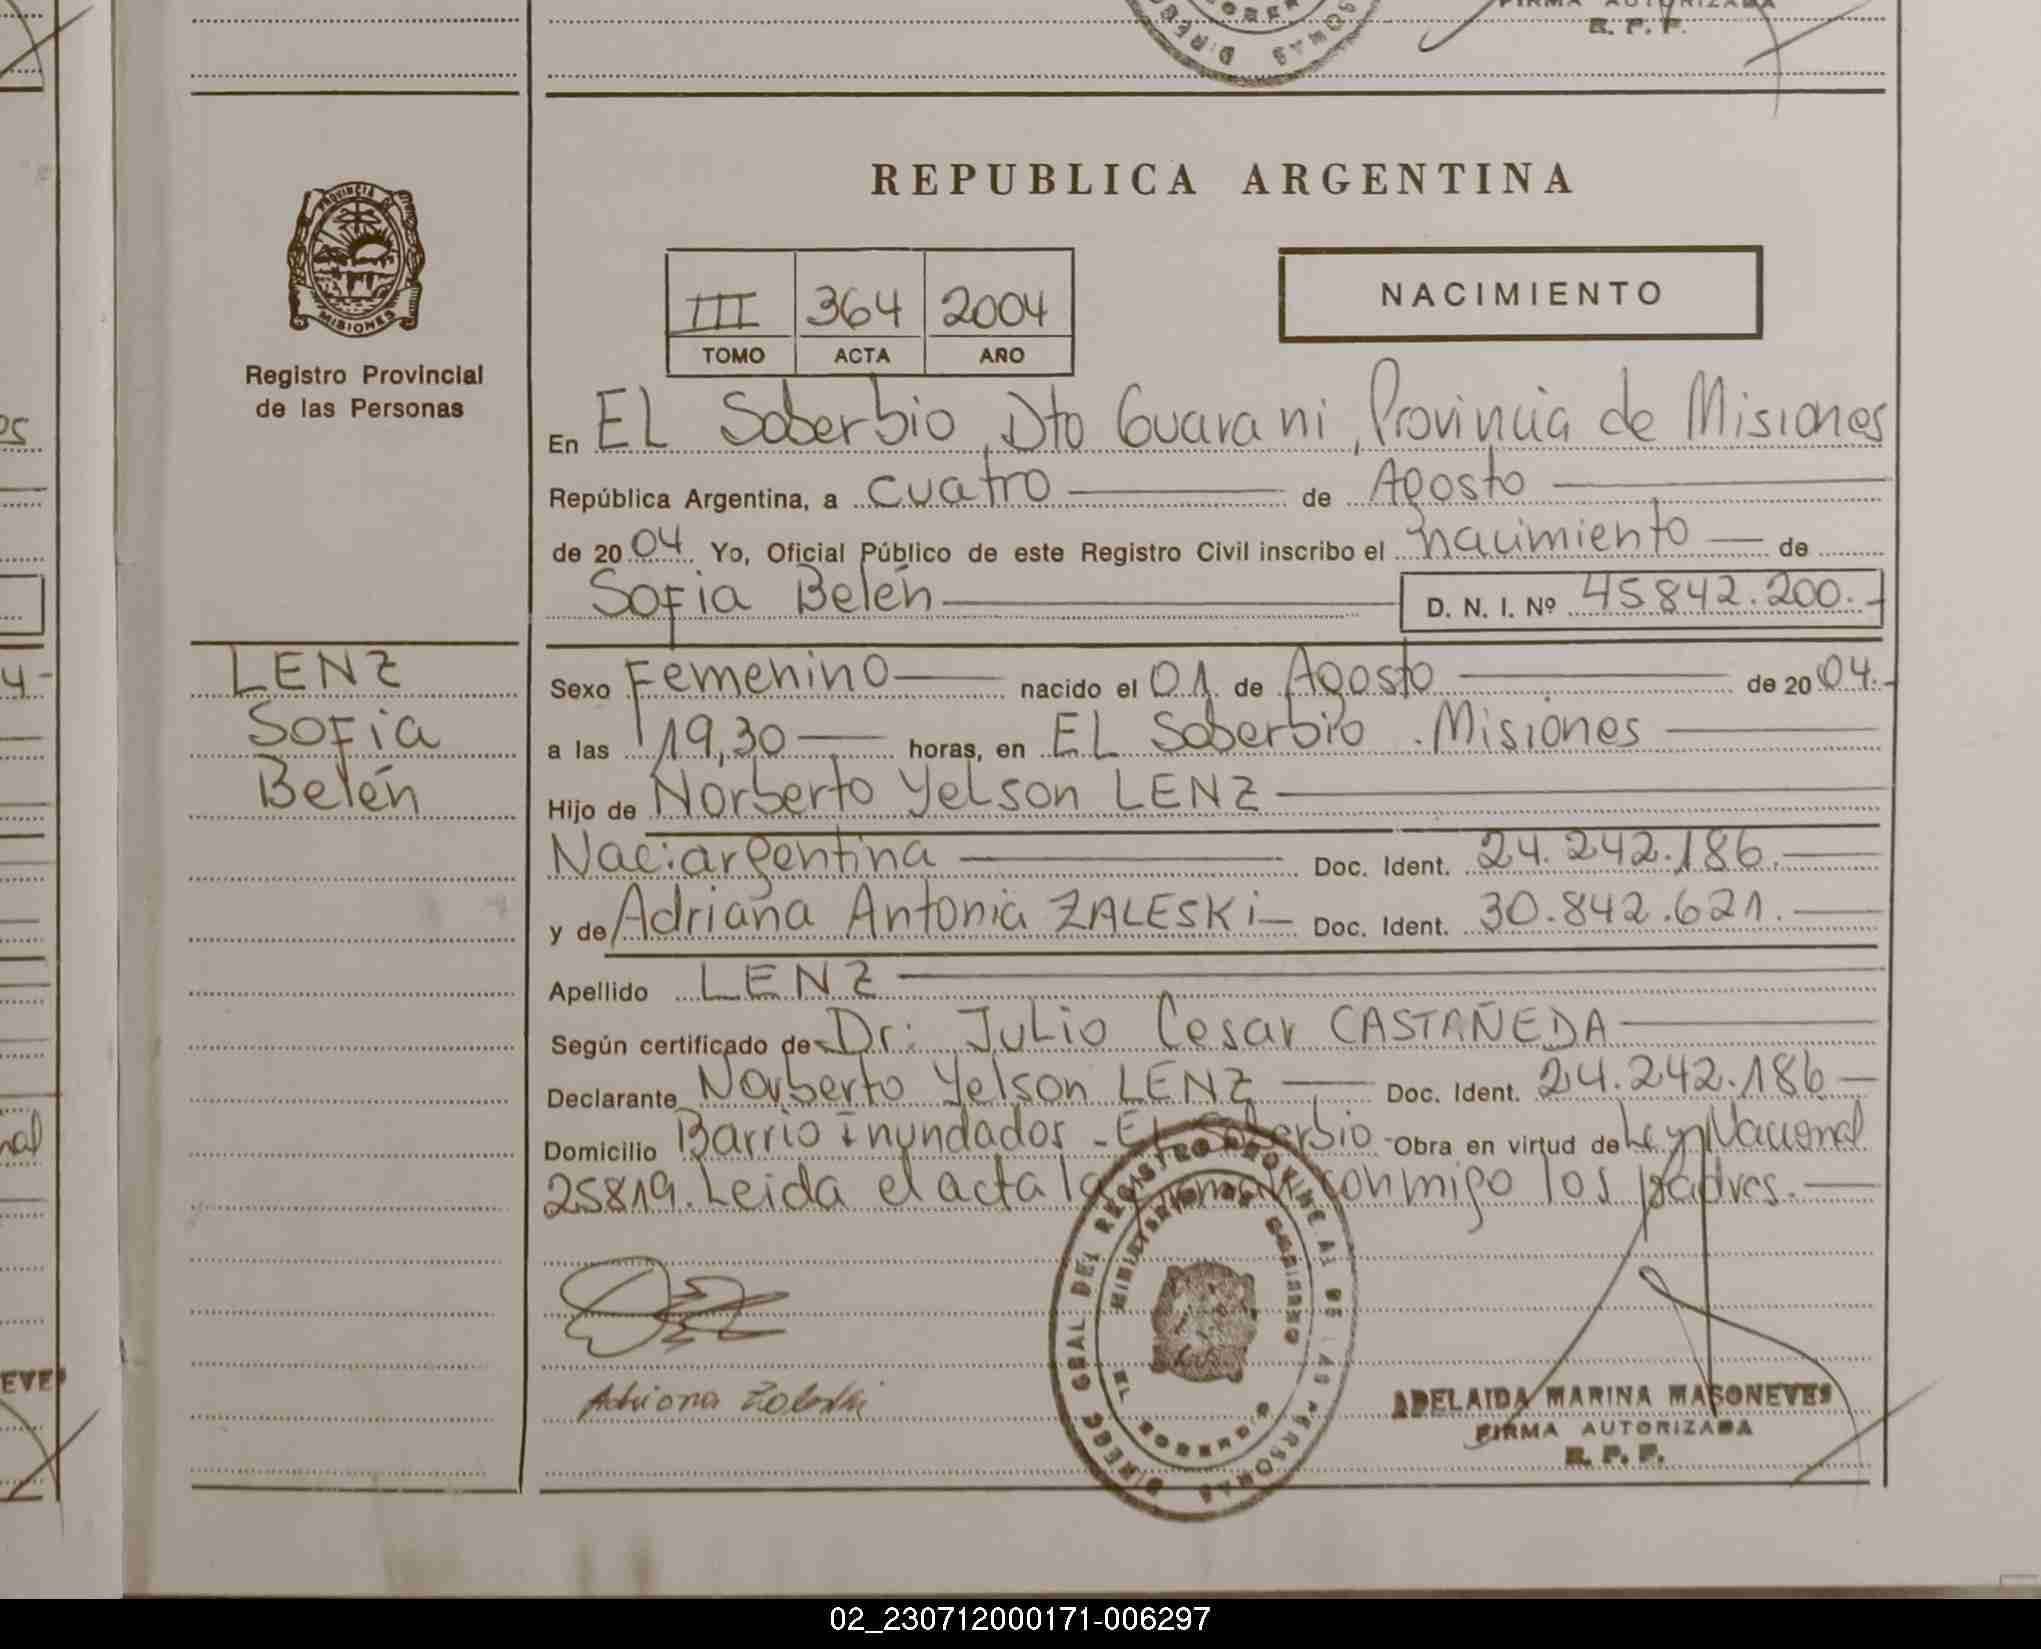 FIRMA AUTORIZADA
R. P. P.
REPUBLICA ARGENTINA
PROVINCIA DE
MISIONES
Registro Provincial
de las Personas
III 364 2004
TOMO ACTA AÑO
NACIMIENTO
En EL Soberbio, Dto Guarani, Provincia de Misiones
República Argentina, a cuatro de Agosto
de 2004 Yo, Oficial Público de este Registro Civil inscribo el nacimiento de
Sofia Belén D. N. I. Nº 45842.200.-
LENZ
Sofia
Belén
Sexo Femenino nacido el 01 de Agosto de 2004.-
a las 19,30 horas, en EL Soberbio . Misiones
Hijo de Norberto Yelson LENZ
Nac: argentina Doc. Ident. 24.242.186.
y de Adriana Antonia ZALESKi Doc. Ident. 30.842.621.
Apellido LENZ
Según certificado de Dr: Julio Cesar CASTAÑEDA
Declarante Norberto Yelson LENZ Doc. Ident. 24.242.186
Domicilio Barrio Inundados - EL Soberbio - Obra en virtud de Ley Nacional
25819. Leida el acta la firman conmigo los padres.
Adriana Zaleski
DIRECC GRAL DEL REGISTRO PROVINCIAL DE LAS PERSONAS
MINISTERIO DE GOBIERNO
EL SOBERBIO
ADELAIDA MARINA MASONEVES
FIRMA AUTORIZADA
R. P. P.
02_230712000171-006297